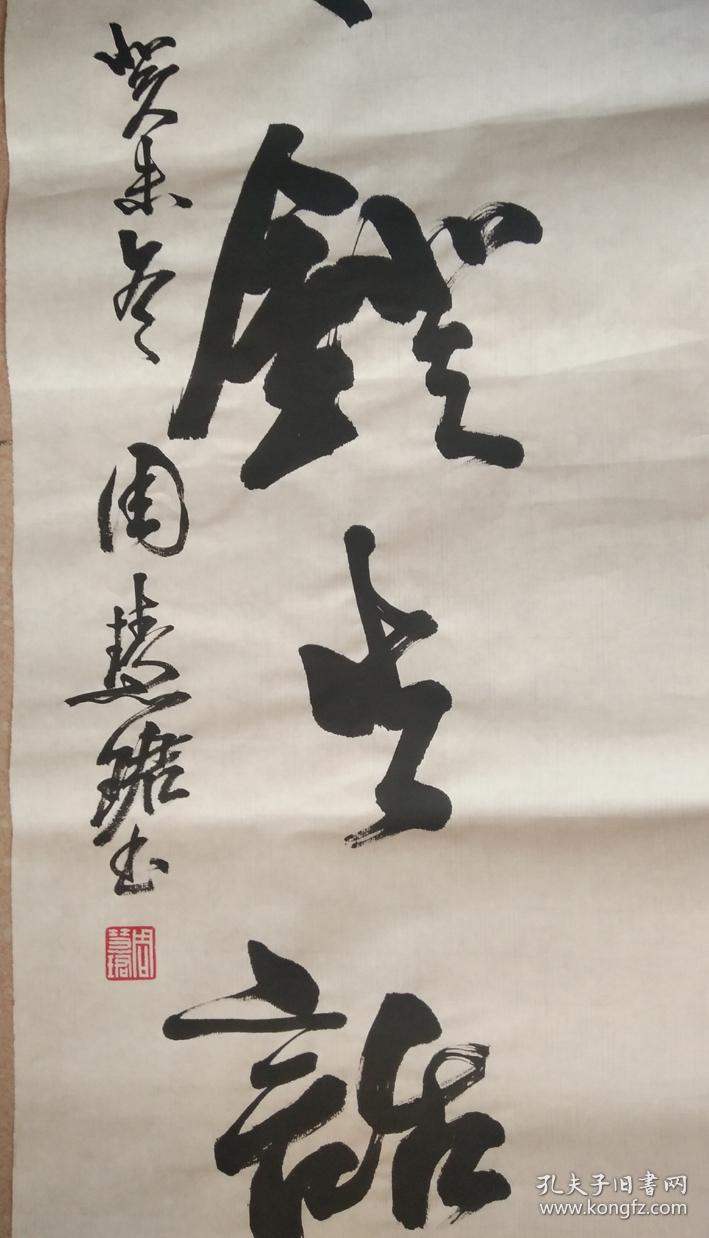 鐙
話
癸未冬 周慧珺书
周慧珺
孔夫子旧书网
www.kongfz.com